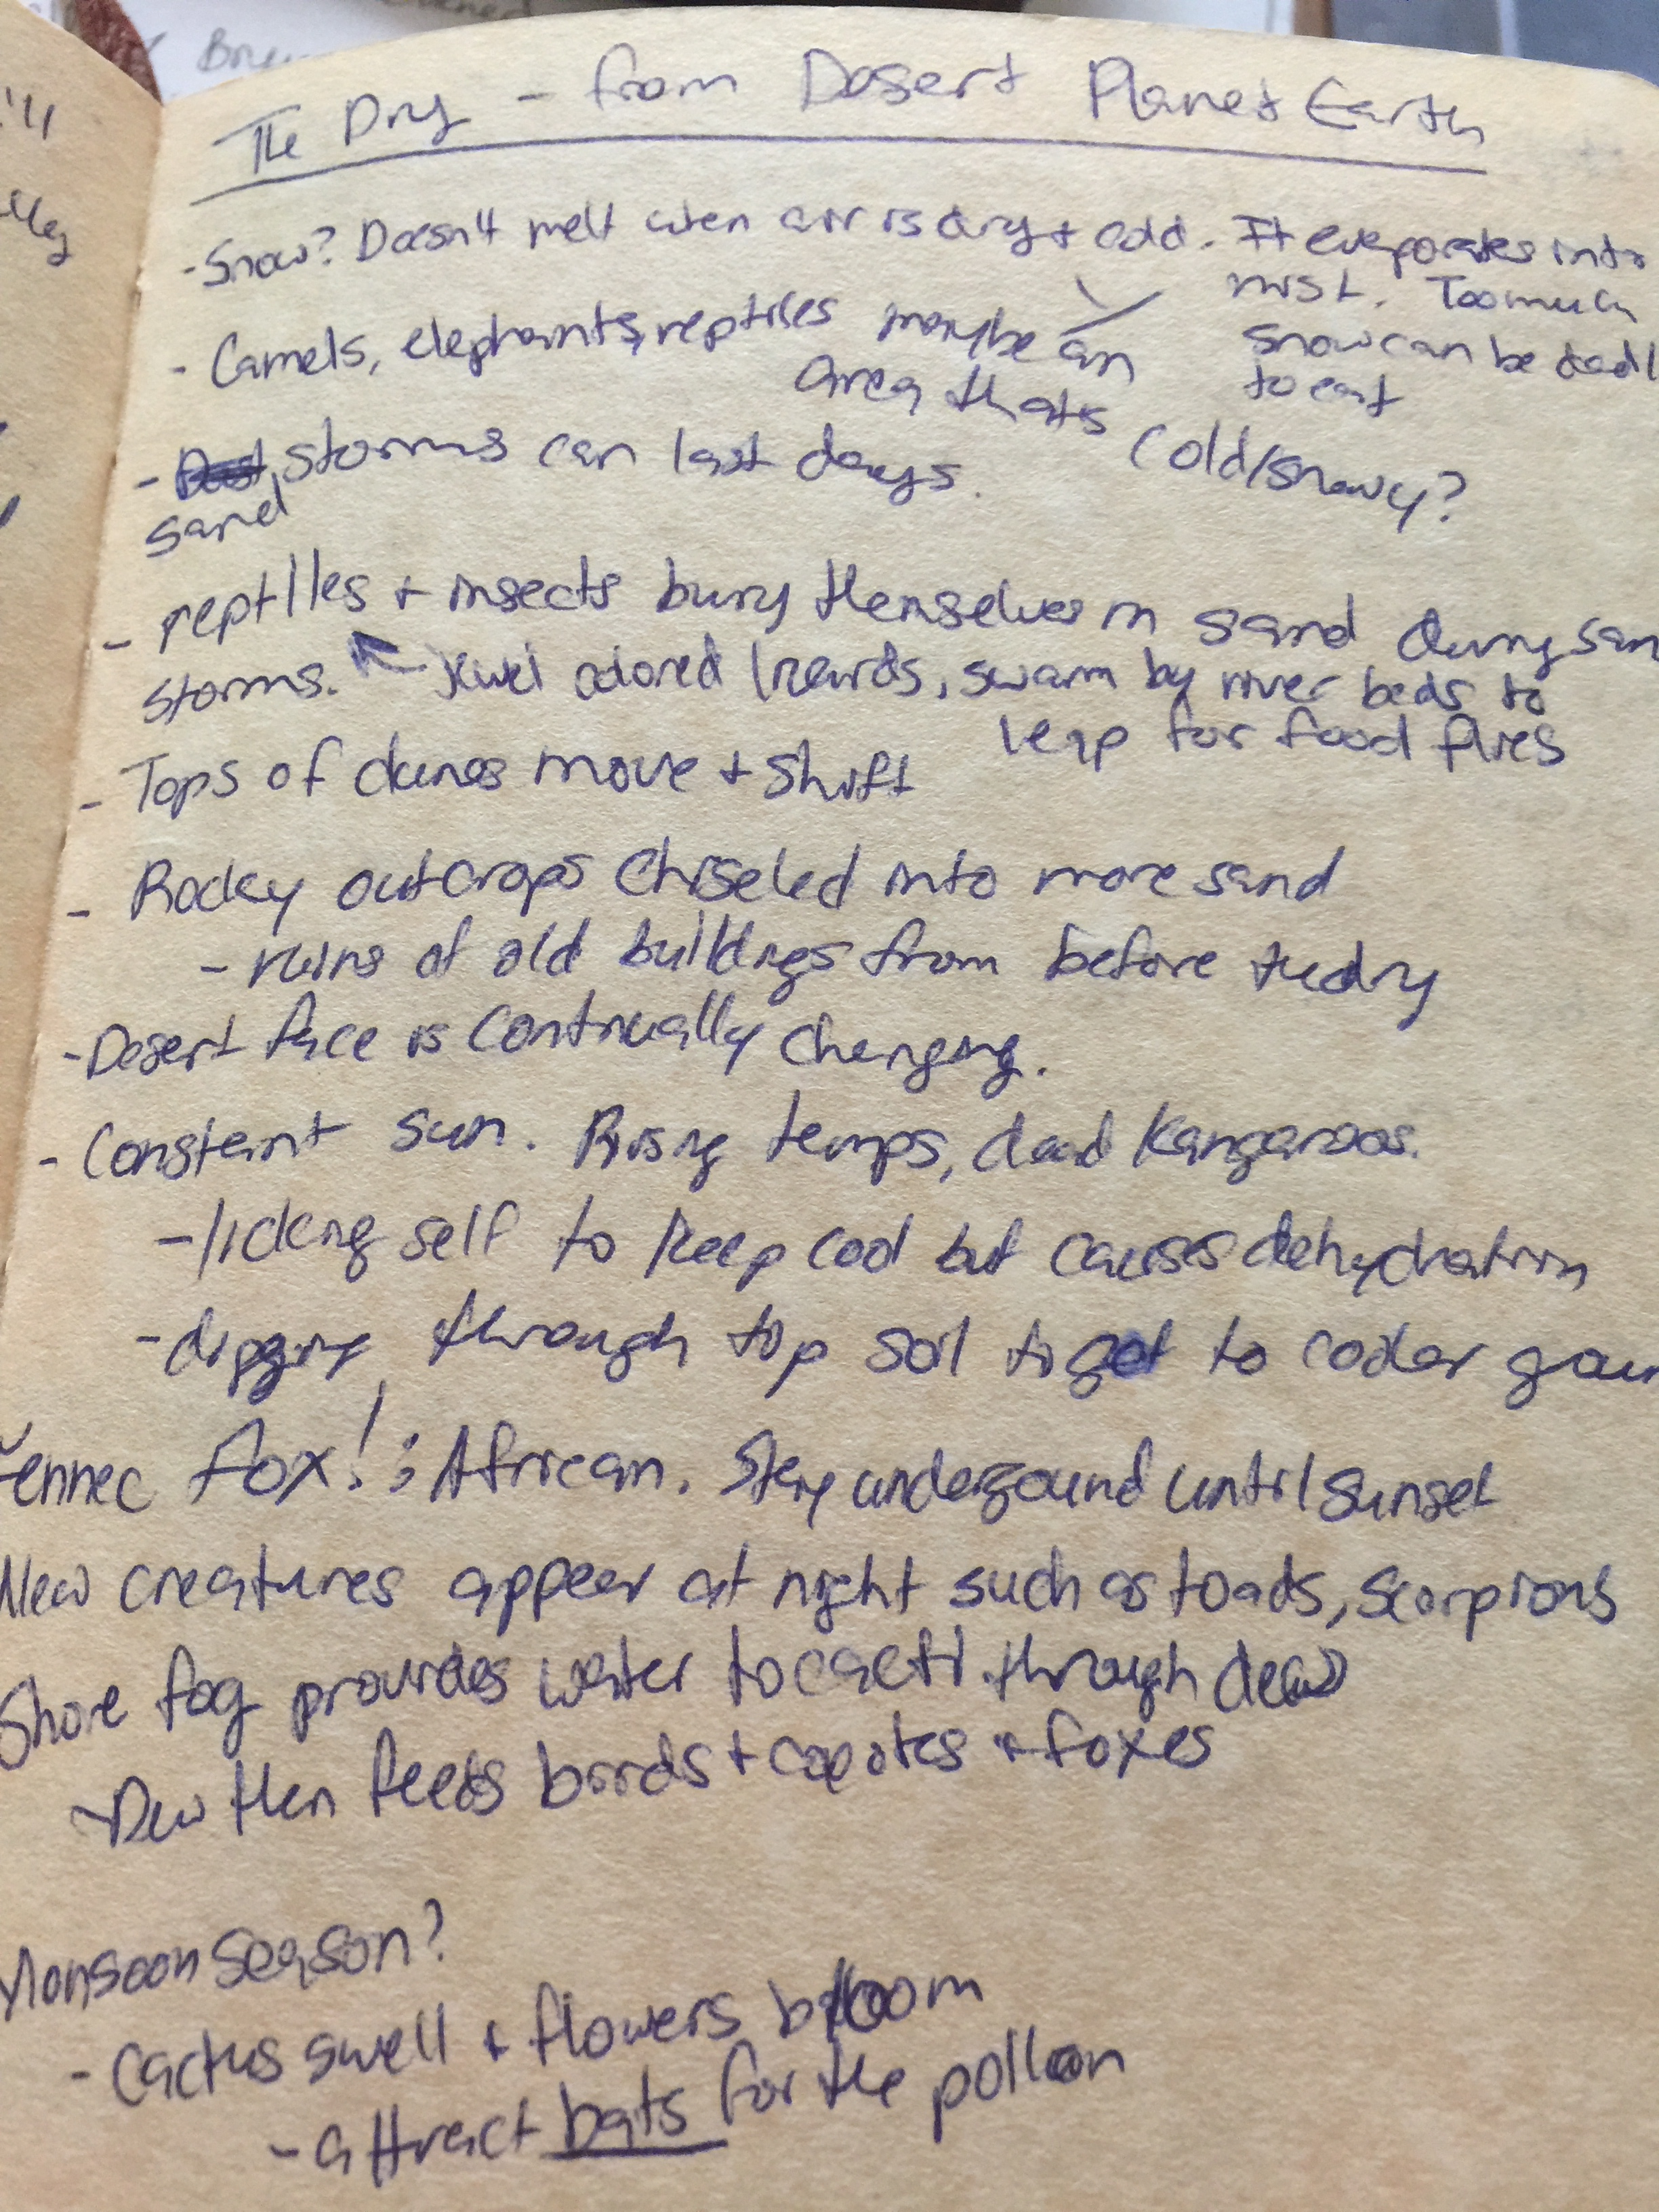 The Dry - from Desert Planet Earth
- Snow? Doesn't melt when air is dry + cold. It evaporates into
mist. Too much
snow can be deadl
to eat
- Camels, elephants, reptiles maybe an
area thats
cold/snowy?
- storms can last days.
sand
- reptiles + insects bury themselves in sand during san
storms. Jewel colored lizards, swarm by river beds to
leap for food flies
- Tops of dunes move + shift
- Rocky outcrops chiseled into more sand
- ruins of old buildings from before the dry
- Desert face is continually changing.
- Constant sun. Rising temps, dead Kangaroos.
- licking self to keep cool but causes dehydration
- digging through top soil to get to cooler groun
Fennec fox! ; African. Stay underground until sunset
New creatures appear at night such as toads, scorpions
Shore fog provides water to cacti through dew
- Dew then feeds birds + coyotes + foxes
Monsoon season?
- Cactus swell + flowers bloom
- attract bats for the pollen